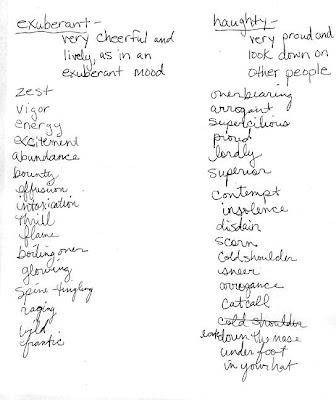 exuberant -
very cheerful and
lively, as in an
exuberant mood
zest
vigor
energy
excitement
abundance
bounty
effusion
intoxication
thrill
flame
boiling over
glowing
spine-tingling
raging
wild
frantic
haughty -
very proud and
look down on
other people
overbearing
arrogant
supercilious
proud
lordly
superior
contempt
insolence
disdain
scorn
cold shoulder
sneer
arrogance
catcall
cold shoulder
look down the nose
under foot
in your hat